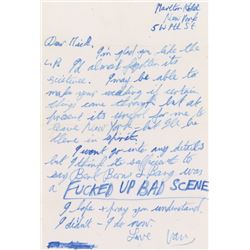 Marlton Hotel
New York
5 W 8th St
Dear Mick,
I'm glad you like the
L.P. I'd almost forgotten its
existence. I may be able to
make your wedding if certain
things come through but at
present its unsafe for me to
leave New York but I'll be
there in spirit.
I wont go into any details
but I think its sufficient to
say Bert Berns & Bang was
a FUCKED UP BAD SCENE
I hope & pray you understand.
I didn't - I do now.
Love Van